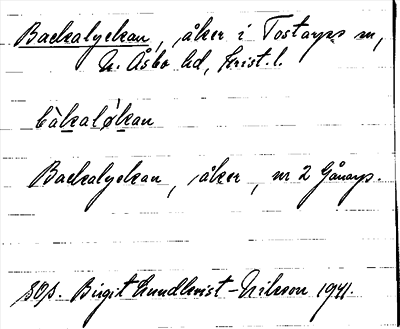 Backalyckan, åker i Tostarps m,
N. Åsbo hd, Krist. l.
bàkaløkan
Backalyckan, åker, nr 2 Gånarp.
sOp. Birgit Lundkvist-Nilsson 1941.